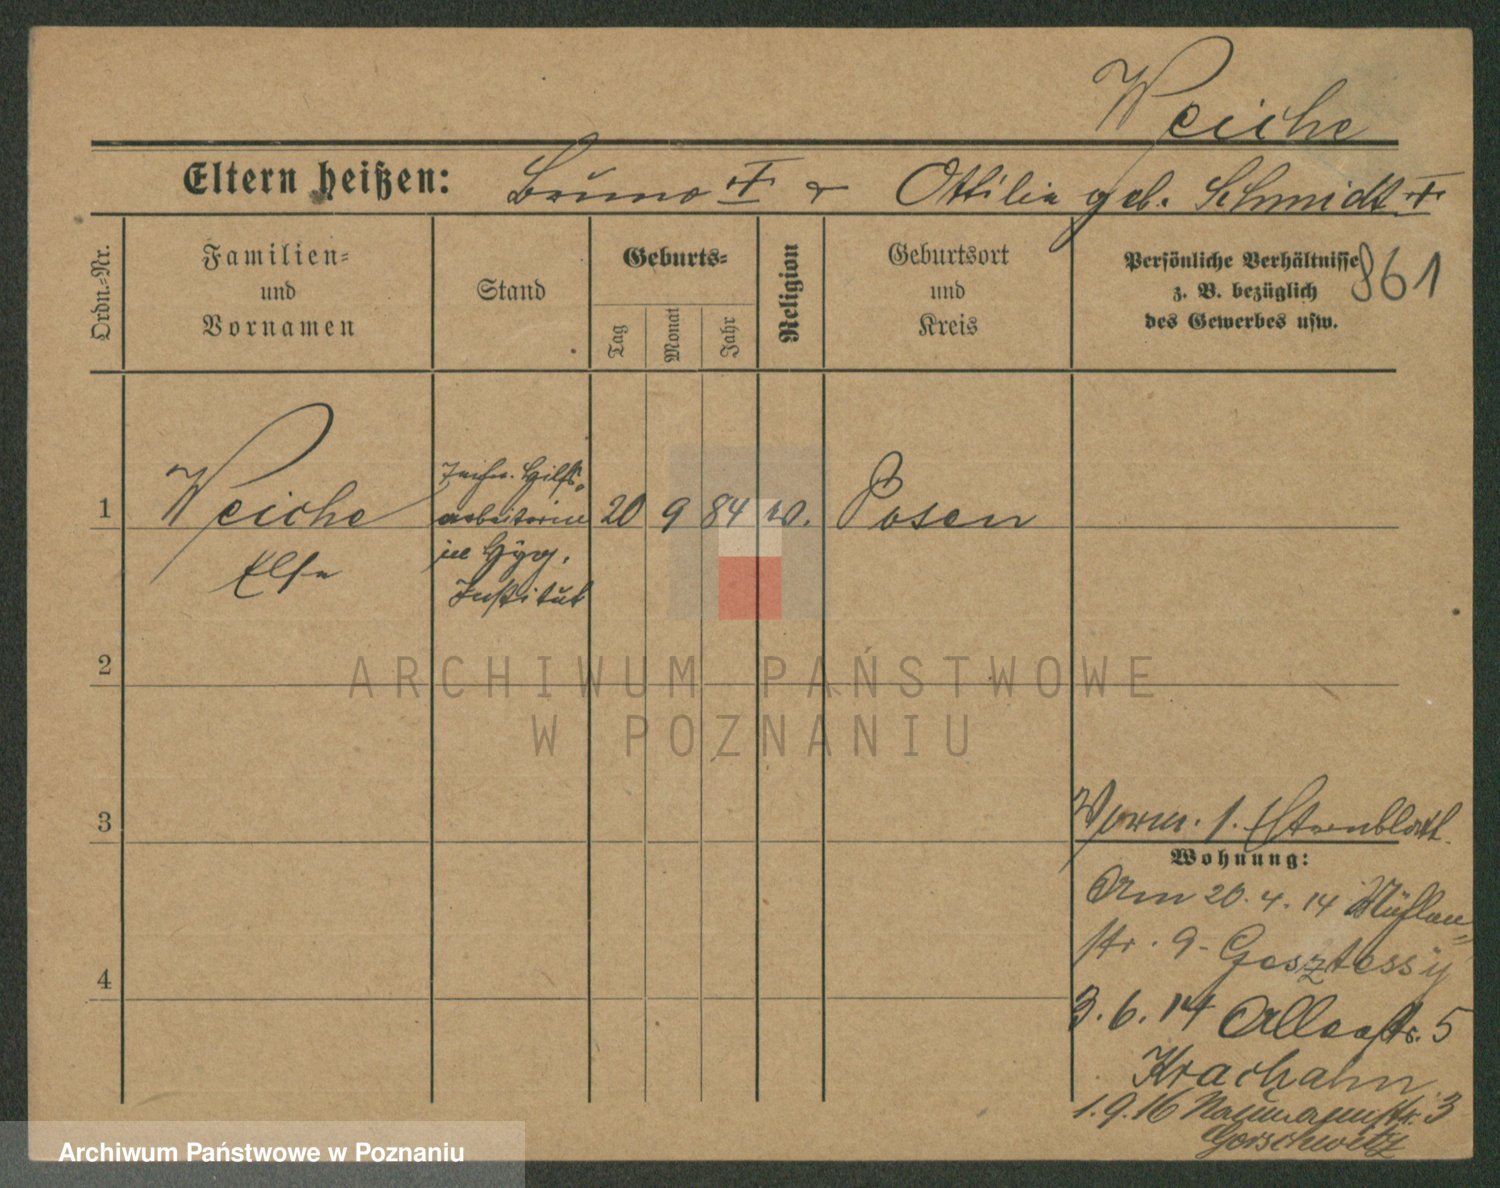 Weiche
Eltern heißen: Bruno † & Ottilie geb. Schmidt †
Ordn.-Nr.
Familien-
und
Vornamen
Stand
Geburts-
Tag
Monat
Jahr
Religion
Geburtsort
und
Kreis
Persönliche Verhältnisse
z. B. bezüglich
des Gewerbes usw.
861
1 Weiche 20 9 84 Posen
Else
Techn. Hilfs-
arbeiterin
im Hyg.
Institut
2
ARCHIWUM PAŃSTWOWE
W POZNANIU
3
Vorm. s.
Wohnung:
Am 20.4.14 Mühlen-
str. 9-
3.6.14 Alleestr. 5
Krachahn
4
1.9.16 Naumannstr. 3
Gorschwitz
Archiwum Państwowe w Poznaniu